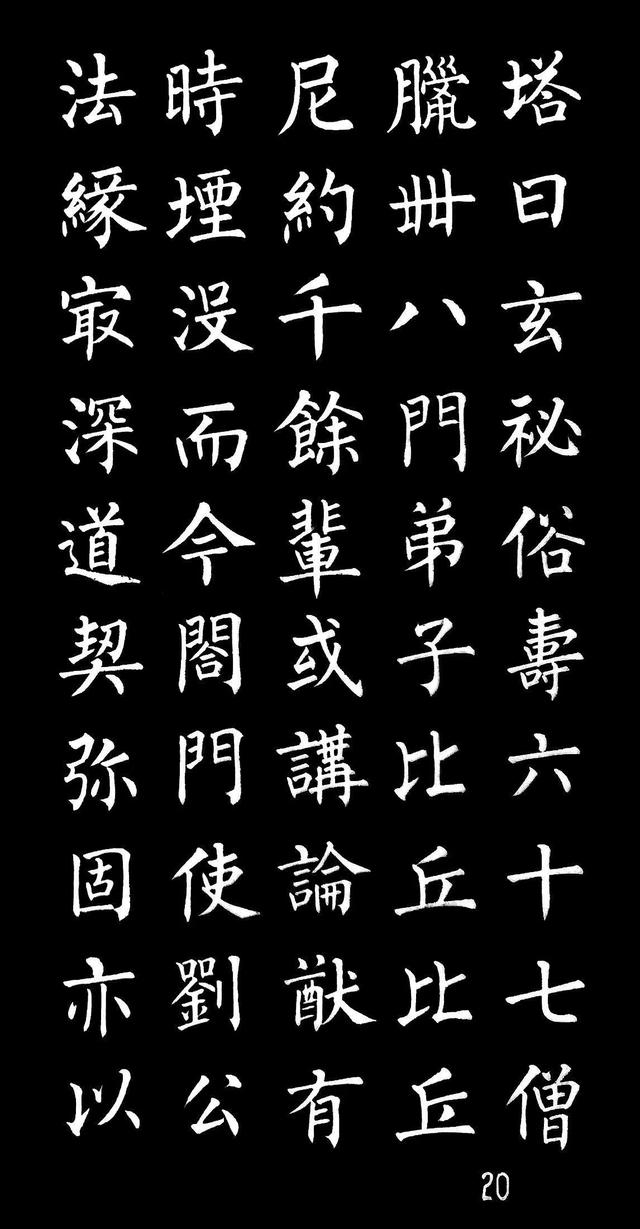 塔曰玄祕俗壽六十七僧
臘卌八門弟子比丘比丘
尼約千餘輩或講論猷有
時堙没而今閤門使劉公
法緣冣深道契弥固亦以
20